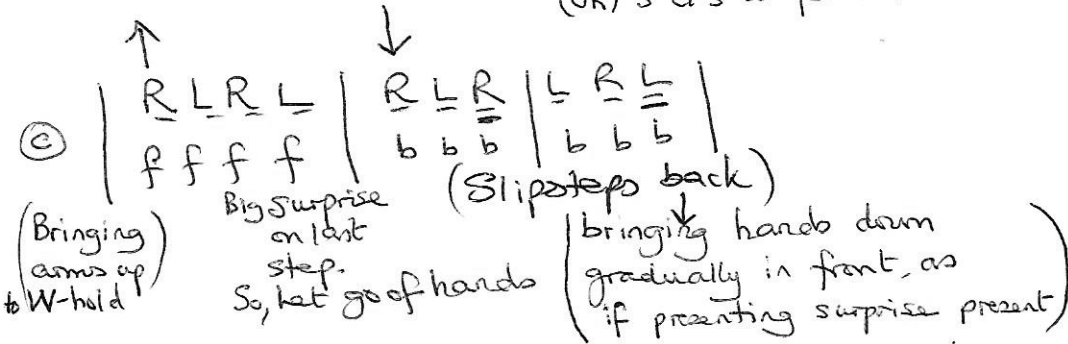 ↑ ↓
Ⓒ | R L R L | R L R | L R L |
f f f f | b b b | b b b
(Slipsteps back)
(Bringing arms up to W-hold)
Big surprise
on last
step.
So, let go of hands
(bringing hands down
gradually in front, as
if presenting surprise present)